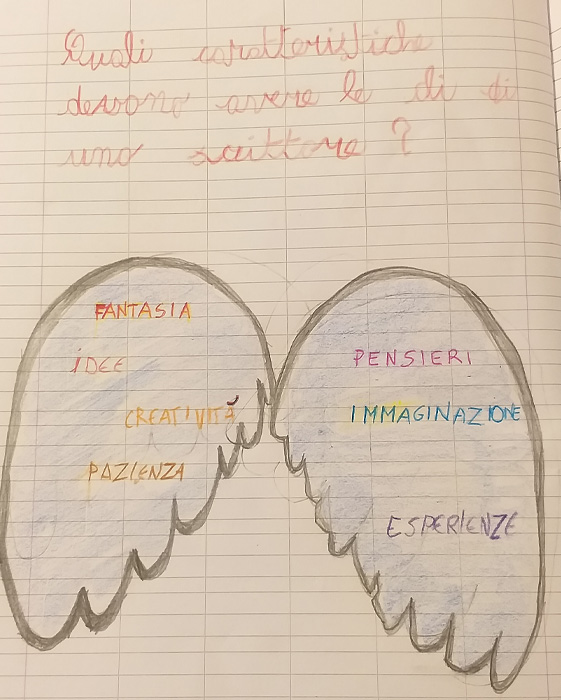 Quali caratteristiche
devono avere le di di
uno scrittore ?
FANTASIA
IDEE
CREATIVITÀ
PAZIENZA
PENSIERI
IMMAGINAZIONE
ESPERIENZE